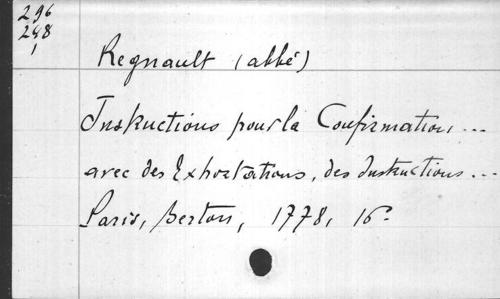 296
248
1
Regnault (abbé)
Instructions pour la Confirmation ...
avec des Exhortations, des Instructions ...
Paris, Berton, 1778, 16°